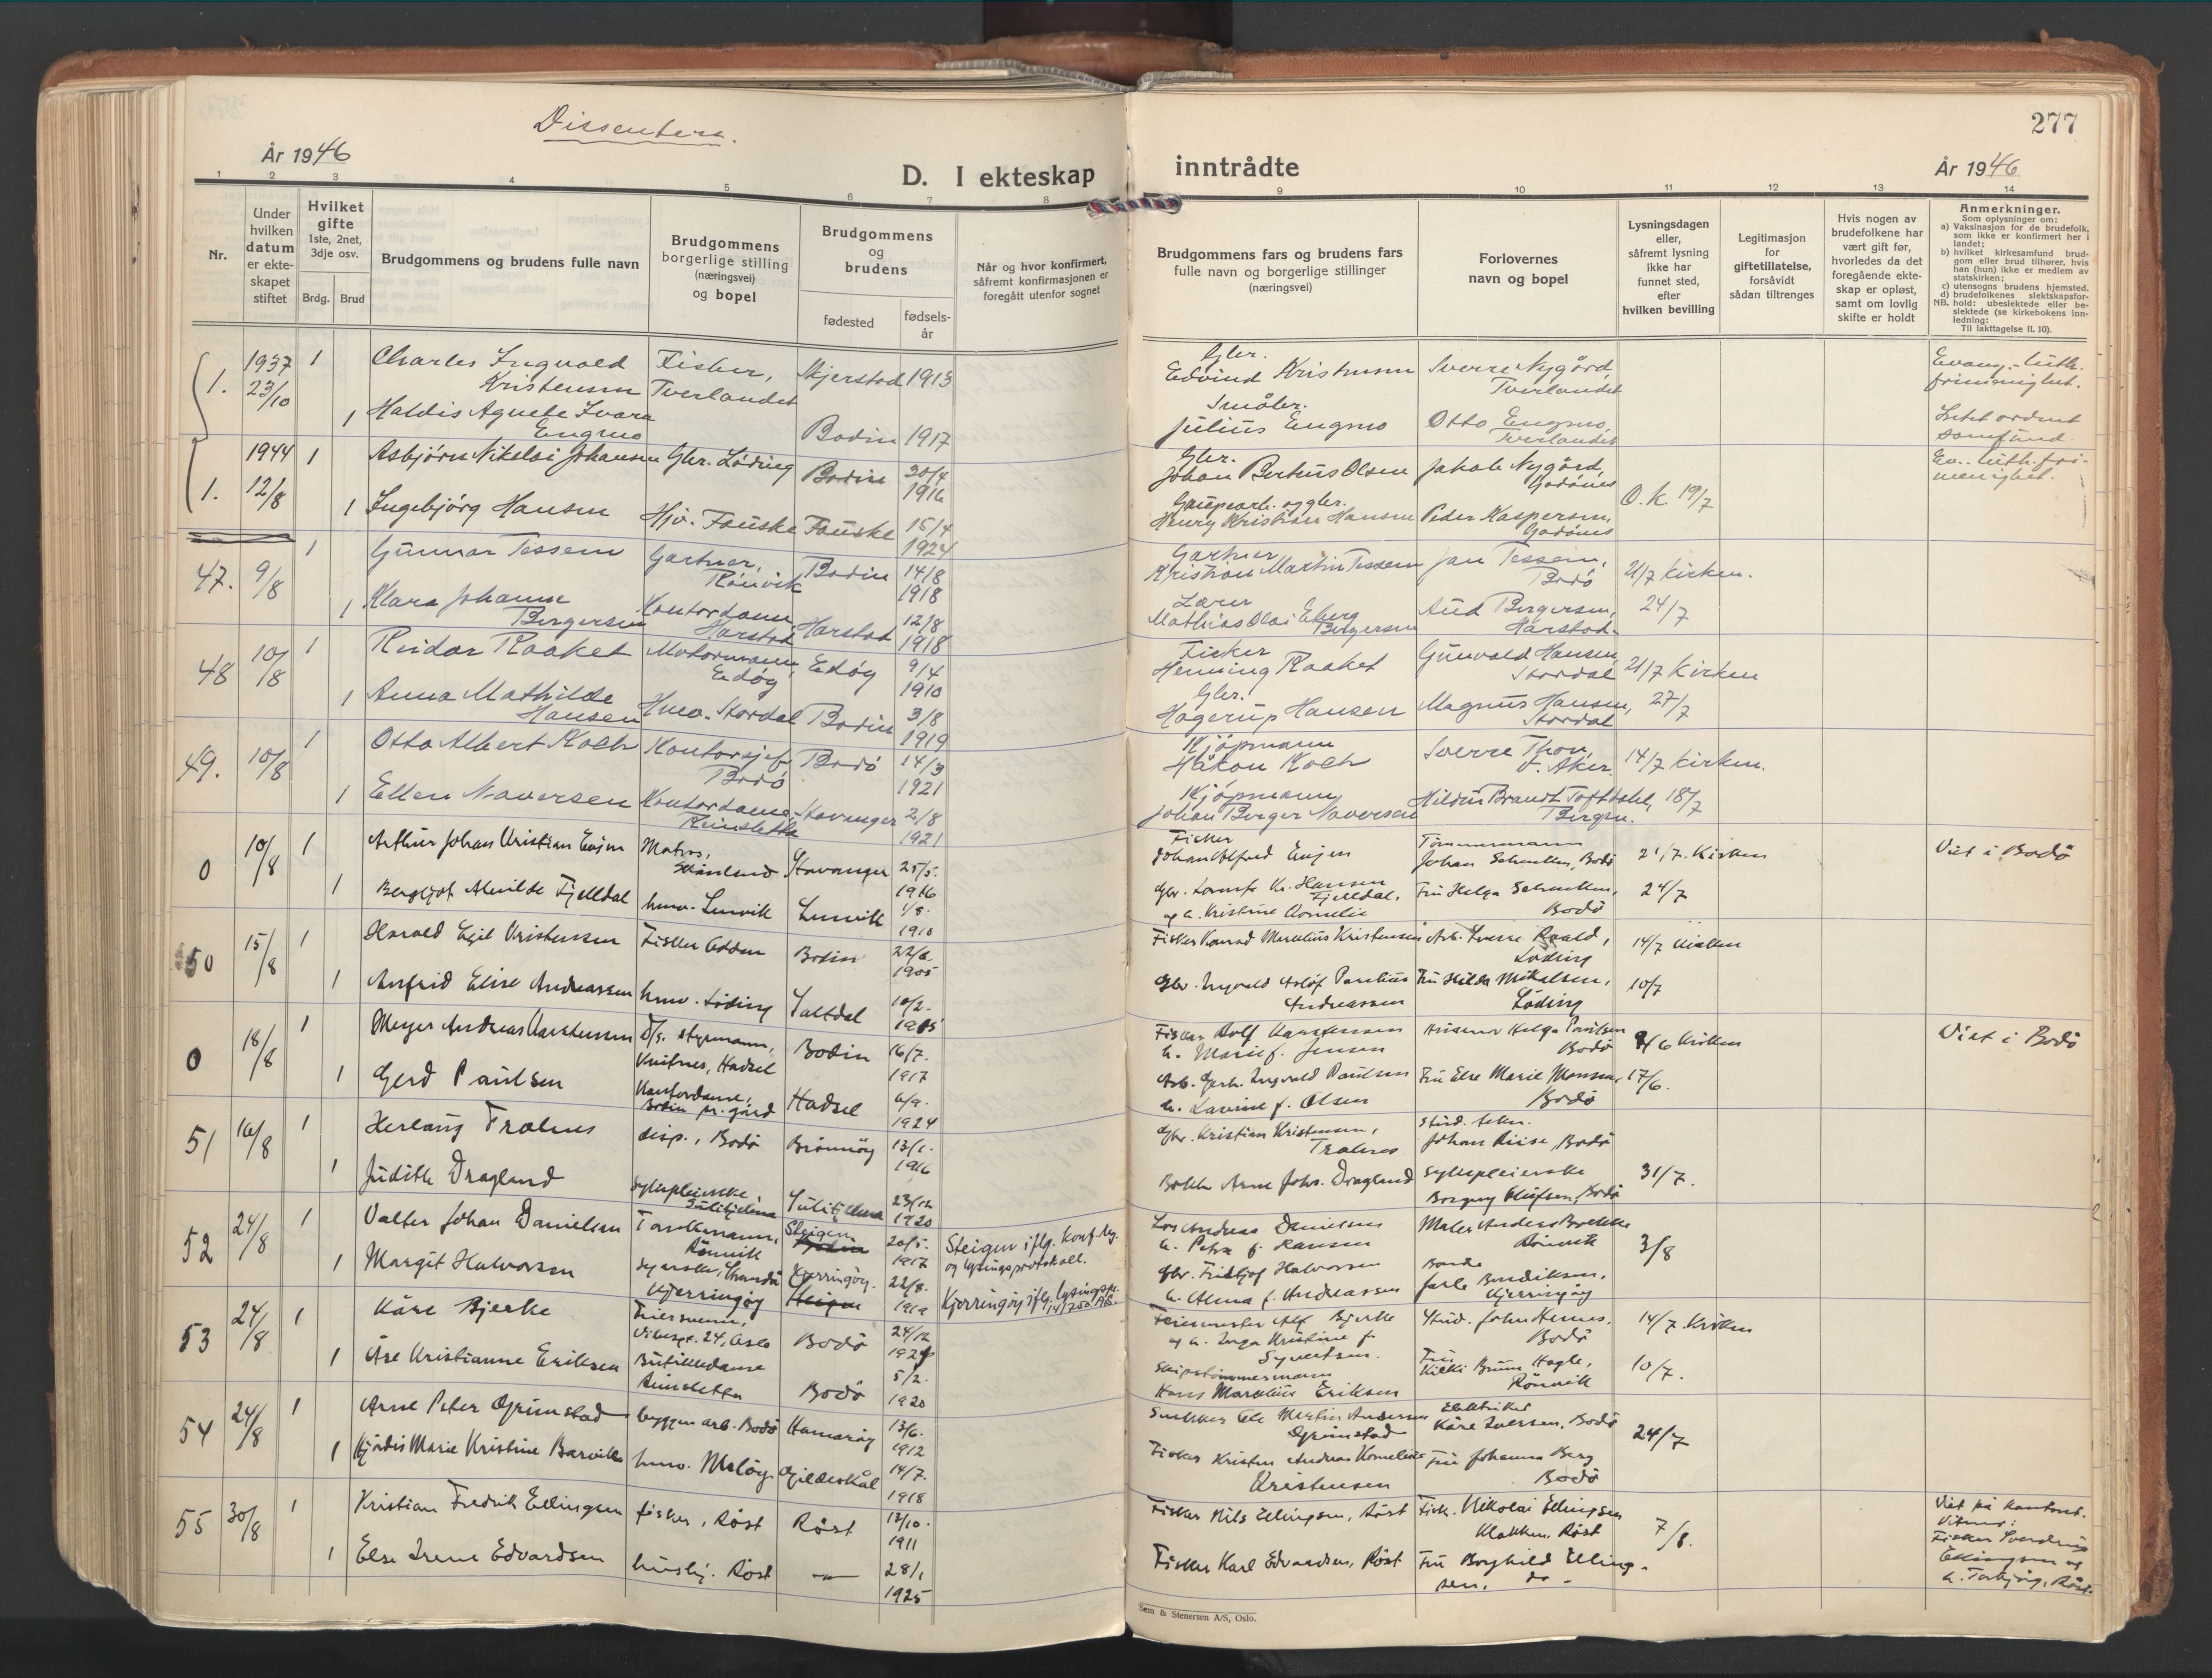 277
Dissentere.
År 1946
D. I ekteskap
inntrådte
År 1946
1 2 3 4 5 6 7 8 9 10 11 12 13 14
Nr.
Under hvilken datum er ekteskapet stiftet
Hvilket gifte
1ste, 2net, 3dje osv.
Brdg.
Brud
Brudgommens og brudens fulle navn
Brudgommens borgerlige stilling (næringsvei) og bopel
Brudgommens og brudens
fødested
fødsels-år
Når og hvor konfirmert,
såfremt konfirmasjonen er
foregått utenfor sognet
Brudgommens fars og brudens fars
fulle navn og borgerlige stillinger
(næringsvei)
Forlovernes
navn og bopel
Lysningsdagen
eller,
såfremt lysning
ikke har
funnet sted,
efter
hvilken bevilling
Legitimasjon
for
giftetillatelse,
forsåvidt
sådan tiltrenges
Hvis nogen av
brudefolkene har
vært gift før,
hvorledes da det
foregående ekte-
skap er opløst,
samt om lovlig
skifte er holdt
Anmerkninger.
Som oplysninger om:
a) Vaksinasjon for de brudefolk,
som ikke er konfirmert her i
landet;
b) hvilket kirkesamfund brud-
gom eller brud tilhører, hvis
han (hun) ikke er medlem av
statskirken;
c) utensogns brudens hjemsted.
d) brudefolkenes slektskapsfor-
NB. hold: ubeslektede eller be-
slektede (se kirkebokens inn-
ledning:
Til iakttagelse II. 10).
1. 1937 23/10 1 Charles Ingvald Kristensen Fisker, Tverlandet Skjerstad 1913 Gbr. Edvind Kristensen Sverre Nygård, Tverlandet Evang.-luth. frimenighet.
1 Haldis Agnete Ivara Engmo Bodin 1917 Småbr. Julius Engmo Otto Engmo, Tverlandet
1. 1944 12/8 1 Asbjørn Nikolai Johansen Gbr. Löding Bodin 30/4 1916 Gbr. Johan Bertús Olsen Jakob Nygård, Godönes O.K. 19/7 Ev.-luth. fri-menighet.
1 Ingebjörg Hansen Hjv. Fauske Fauske 15/4 1924 Henry Kristian Hansen Peder Kaspersen, Godönes
47. 9/8 1 Gunnar Tessem Gartner, Rönvik Bodin 14/8 1918 Gartner Kristian Martin Tessem Jan Tessem, Bodö 21/7 Kirken.
1 Klara Johanne Bergersen Kontordame, Harstad Harstad 12/8 1918 Lærer Mathias Olai Eberg Bergersen Aud Bergersen, Harstad. 24/7
48 10/8 1 Reidar Raaket Motormann, Edøy Edøy 9/4 1910 Fisker Henning Raaket Gunvald Hansen, Stordal 21/7 Kirken
1 Anna Mathilde Hansen Hmv. Stordal Bodin 3/8 1919 Gbr. Hagerup Hansen Magnus Hansen, Stordal 27/7
49. 10/8 1 Otto Albert Koch Kontorsjef Bodö Bodö 14/3 1921 Kjöpmann Håkon Koch Sverre Thon, V. Aker. 14/7 Kirken.
1 Ellen Naversen Kontordame, Reinsletta Stavanger 2/8 1921 Kjöpmann Johan Berger Naversen Hildur Brandt Toftdahl, Bergen. 18/7
0 10/8 1 Arthur Johan Kristian Evjen Matros, Skånland Stavanger 25/5. 1916 Fisker Johan Alfred Evjen Tömmermann Johan Schenken, Bodö 21/7. Kirken Viet i Bodö
1 Bergljot Alvilde Fjelldal hmv. Lenvik Lenvik 1/8. 1910 Fru Helga Schenken, Bodö 24/7
50 15/8 1 Harald Egil Kristensen Fisker Bodin 22/6. 1905 Fisker Konrad Markus Kristensen Arb. Sverre Roald, Löding 14/7 Kirken
1 Anfrid Elise Andreassen hmv. Löding Saltdal 10/2. 1915 Gbr. Ingvald Andreassen Fru Hilda Mikalsen, Löding 10/7
0 18/8 1 Meyer Andreas Karstensen styrmann, Knitnes, Hadsel Bodin 16/7. 1917 Fisker Rolf Karstensen h. Marie f. Jensen Helga Paulsen Bodö 9/6 Kirken Viet i Bodö
1 Gerd Paulsen Kontordame, Bodin pr.gård Hadsel 6/9. 1924 Ingvald Paulsen h. Lavine f. Olsen Fru Else Marie Monsen, Bodö 17/6.
51 16/8 1 Herlaug Tralnes disp., Bodö Brönnöy 13/1. 1916 Gbr. Kristian Kristensen, Tralnes Stud. tekn. Johan Riise, Bodö
1 Judith Dragland sykepleierske, Sulitjelma Sulitjelma 23/12 1920 Arne Johs. Dragland sykepleierske Borgny Olufsen, Bodö 31/7.
52 24/8 1 Valter Johan Danielsen Rönvik Steigen 20/5. 1917 Steigen iflg. konf.reg. og lysingsprotokoll. Los Andreas Danielsen h. Petra f. Hansen Maler Anders Rönvik 3/8
1 Margit Halvorsen Kjerringöy Kjerringöy. 22/8. 1919 Kjerringöy iflg. lysingspr. Gbr. Fridtjof Halvorsen h. Alma f. Andreassen Bonde Jarle Bendiksen, Kjerringöy
53 24/8 1 Kåre Bjerke Feiersvenn, Oslo Bodö 24/12 Feiermester Alf Bjerke og h. Inga Kristine f. Syvertsen. Stud. John Hernes, Bodö 14/7. Kirken
1 Åse Kristianne Eriksen Butikkdame Reinsletta Bodö 5/2. 1920 Skipstømmermann Hans Markus Eriksen Fru Kikki Bruun Hagle, Rönvik 10/7.
54 24/8 1 Arne Peter Grimstad byggn.arb. Bodö Hamaröy 13/6. 1912 Snekker Ole Martin Andersen Grimstad Elektriker Kåre Iversen, Bodö 24/7
1 Hjördis Marie Kristine Barvik hmv. Melöy Gildeskål 14/7. 1918 Fisker Kristen Andreas Kornelius Kristensen Fru Johanna Berg Bodö
55 30/8 1 Kristian Fredrik Ellingsen fisker, Röst Röst 13/10. 1911 Fisker Nils Ellingsen, Röst Fisk. Nikolai Ellingsen Klakken, Röst 7/8. Viet på kontoret. Vitner: Fisker Sverdrup Ellingsen og h. Torbjørg, Röst.
1 Else Irene Edvardsen hushj. Röst -"- 28/1 1925 Fisker Karl Edvardsen, Röst Fru Borghild Elling-sen, do -
Sem & Stenersen A/S, Oslo.